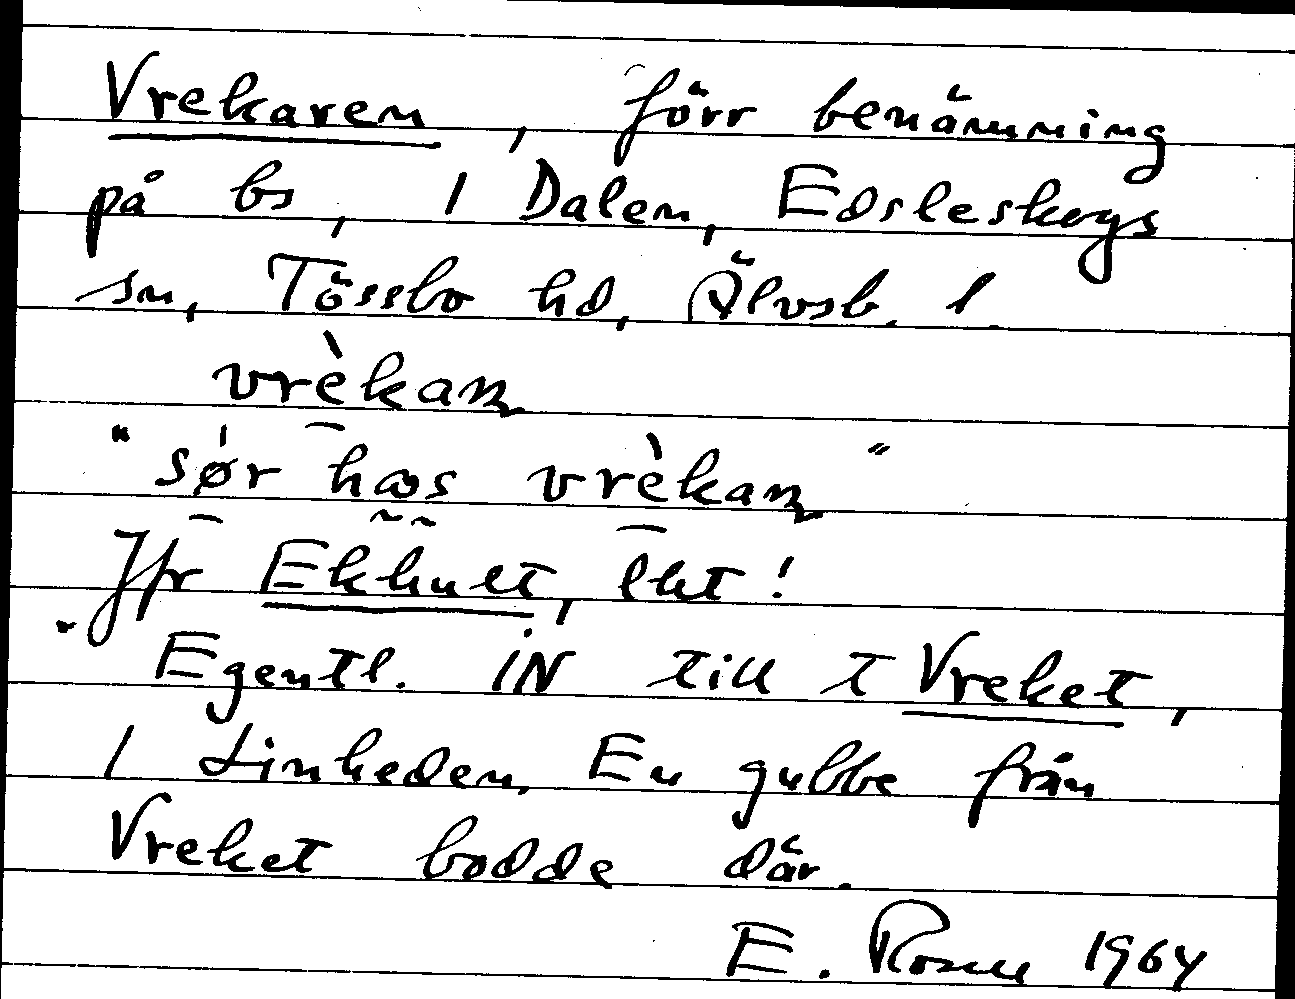 Vrekaren, förr benämning
på bs, 1 Dalen, Edsleskogs
sn, Tössbo hd, Älvsb. l.
vrèkan
"sør hos vrèkan"
Jfr Ekhult, lht!
Egentl. IN till t Vreket,
1 Linheden. En gubbe från
Vreket bodde där.
E. 1964